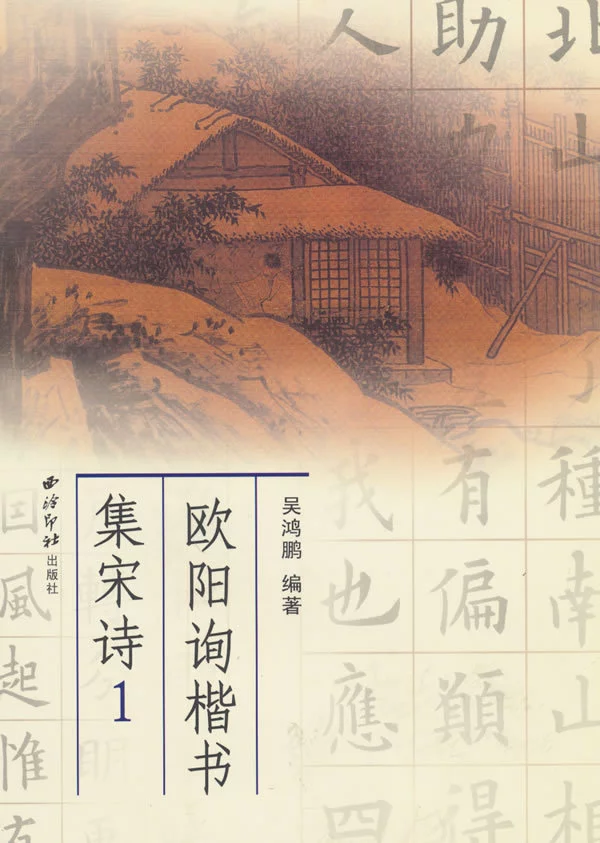 欧阳询楷书
集宋诗1
吴鸿鹏 编著
西泠印社
出版社
北山
助
人
種南山相
有偏顛得
我也應四
因風起惟有
明